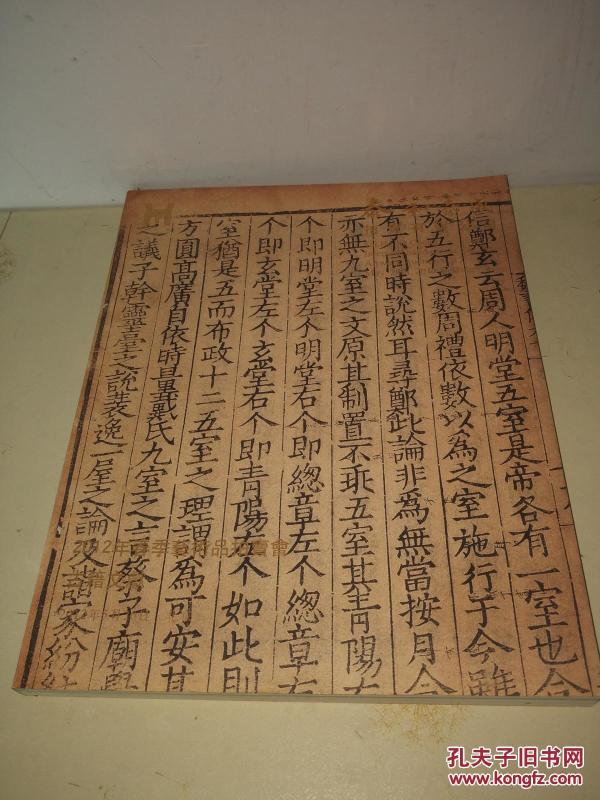 信鄭玄云周人明堂五室是帝各有一室也合
於五行之數周禮依數以為之室施行于今雖
有不同時說然耳尋鄭此論非為無當按月令
亦無九室之文原其制置不乖五室其青陽右
个即明堂左个明堂右个即總章左个總章右
个即玄堂左个玄堂右个即青陽左个如此則
室猶是五而布政十二五室之理謂為可安其
方圓高廣自依時量戴氏九室之言蔡子廟學
之議子幹靈臺之說裴逸一屋之論及諸家紛紜
2012年春季藝術品拍賣會
古籍
孔夫子旧书网
www.kongfz.com